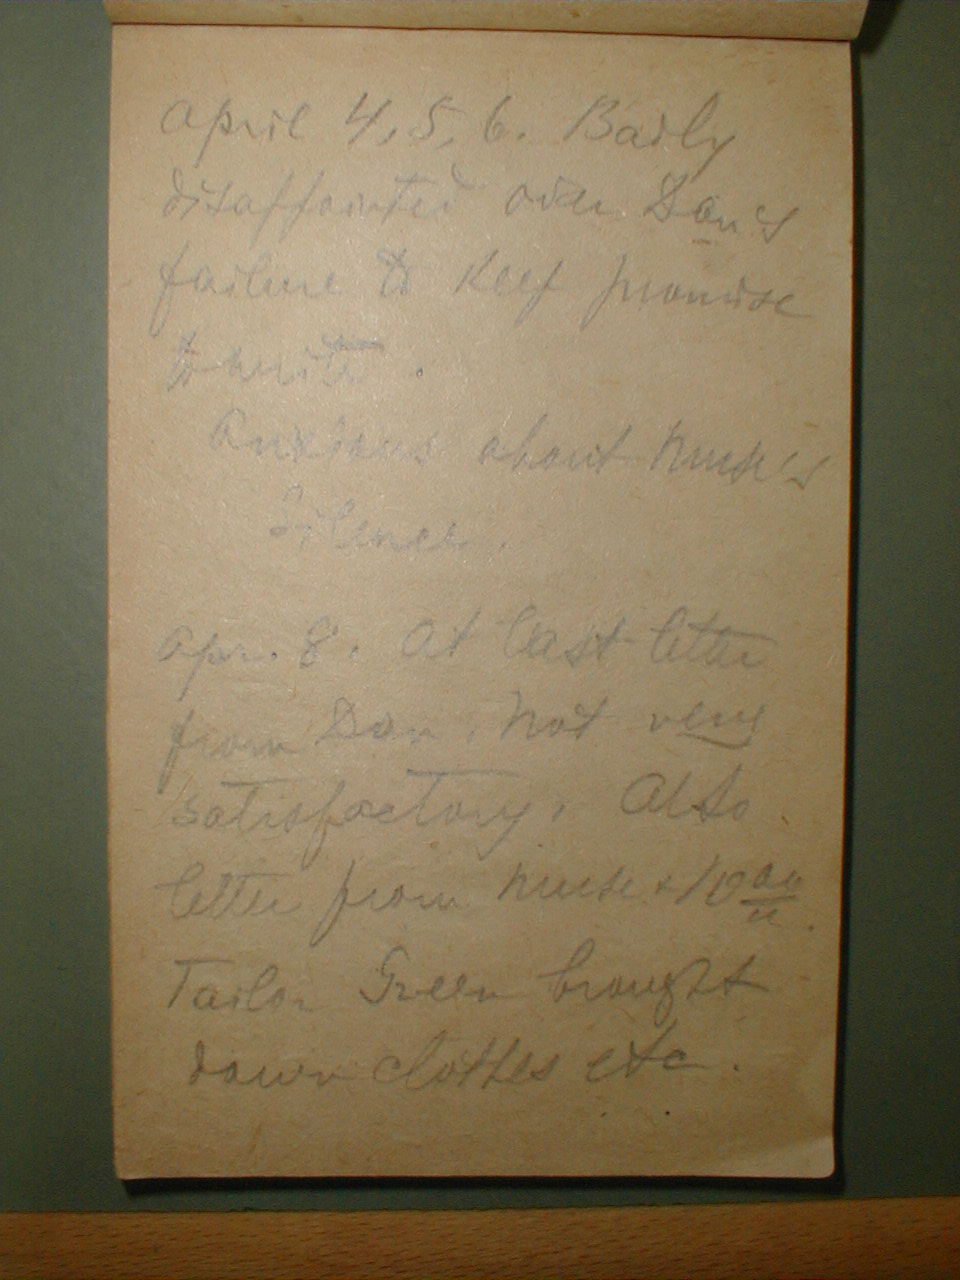 April 4, 5, 6. Badly
disappointed over Dan's
failure to keep promise
to write.
Anxious about Nurse's
Silence.
Apr. 8. At last letter
from Dan. Not very
satisfactory. Also
letter from Nurse +
Tailor Green brought
down clothes etc.